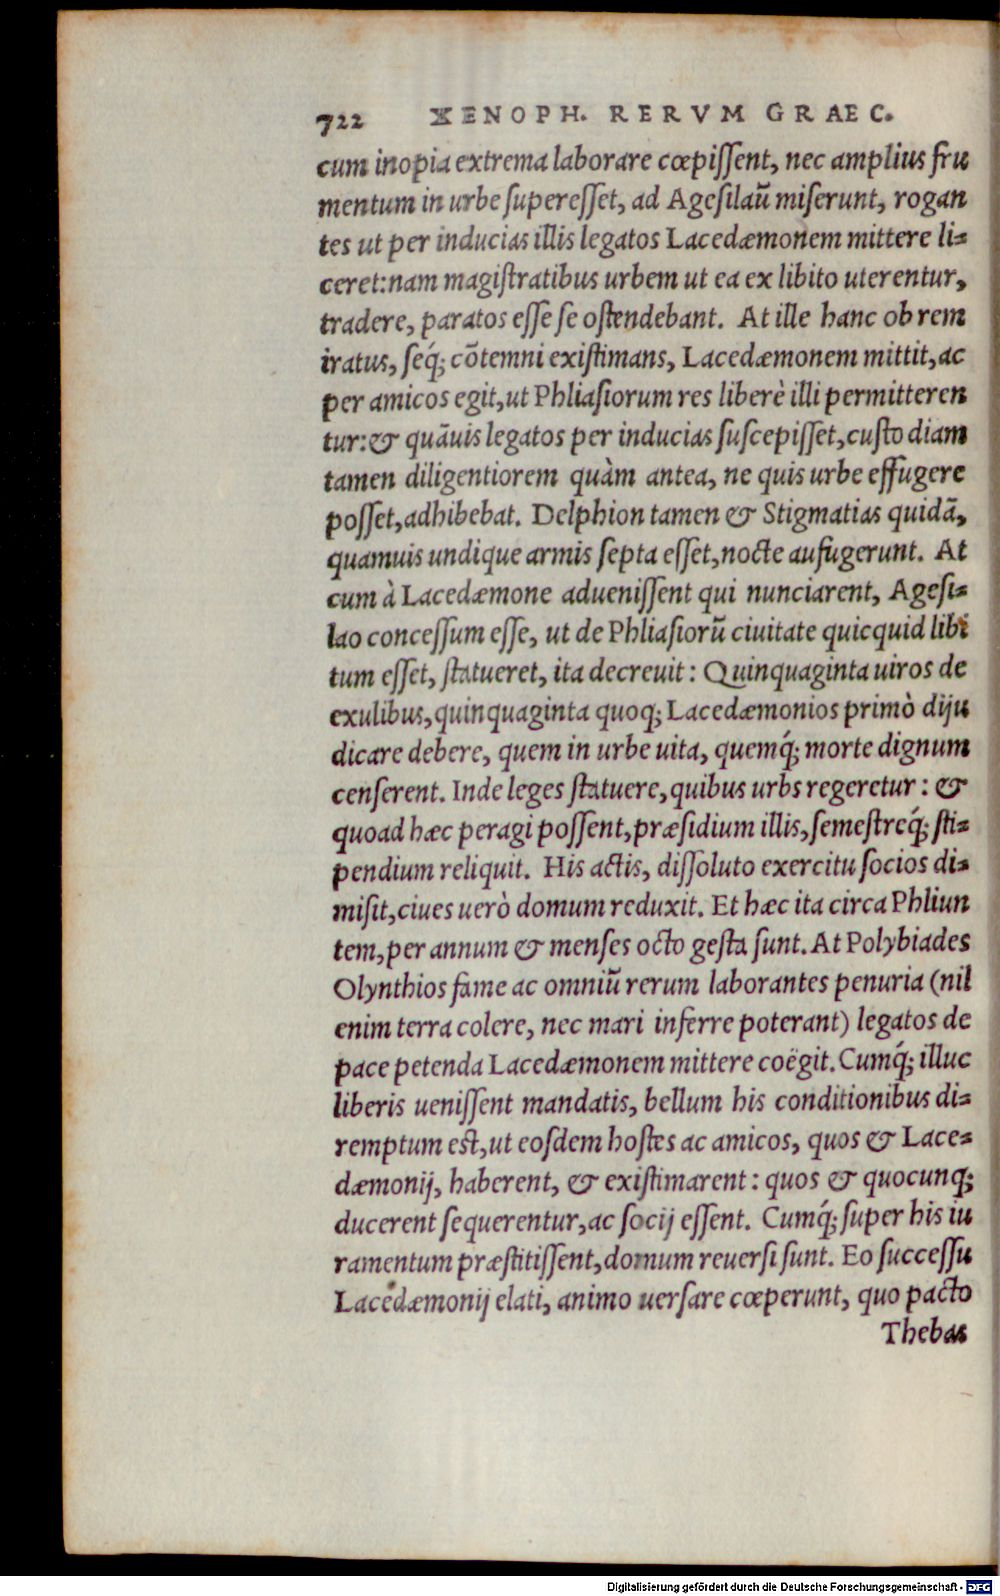 722 XENOPH. RERVM GRAEC.
cum inopia extrema laborare cœpissent, nec amplius fru
mentum in urbe superesset, ad Agesilaũ miserunt, rogan
tes ut per inducias illis legatos Lacedæmonem mittere li-
ceret: nam magistratibus urbem ut ea ex libito uterentur,
tradere, paratos esse se ostendebant. At ille hanc ob rem
iratus, seq́; cõtemni existimans, Lacedæmonem mittit, ac
per amicos egit, ut Phliasiorum res liberè illi permitteren
tur: & quãuis legatos per inducias suscepisset, custodiam
tamen diligentiorem quàm antea, ne quis urbe effugere
posset, adhibebat. Delphion tamen & Stigmatias quidã,
quamuis undique armis septa esset, nocte aufugerunt. At
cum à Lacedæmone aduenissent qui nunciarent, Agesi-
lao concessum esse, ut de Phliasiorũ ciuitate quicquid libi
tum esset, statueret, ita decreuit: Quinquaginta uiros de
exulibus, quinquaginta quoq; Lacedæmonios primò diju
dicare debere, quem in urbe uita, quemq́; morte dignum
censerent. Inde leges statuere, quibus urbs regeretur: &
quoad hæc peragi possent, præsidium illis, semestreq́; sti-
pendium reliquit. His actis, dissoluto exercitu socios di-
misit, ciues uerò domum reduxit. Et hæc ita circa Phliun
tem, per annum & menses octo gesta sunt. At Polybiades
Olynthios fame ac omniũ rerum laborantes penuria (nil
enim terra colere, nec mari inferre poterant) legatos de
pace petenda Lacedæmonem mittere coëgit. Cumq́; illuc
liberis uenissent mandatis, bellum his conditionibus di-
remptum est, ut eosdem hostes ac amicos, quos & Lace-
dæmonij, haberent, & existimarent: quos & quocunq;
ducerent sequerentur, ac socij essent. Cumq́; super his iu
ramentum præstitissent, domum reuersi sunt. Eo successu
Lacedæmonij elati, animo uersare cœperunt, quo pacto
Thebas
Digitalisierung gefördert durch die Deutsche Forschungsgemeinschaft - DFG